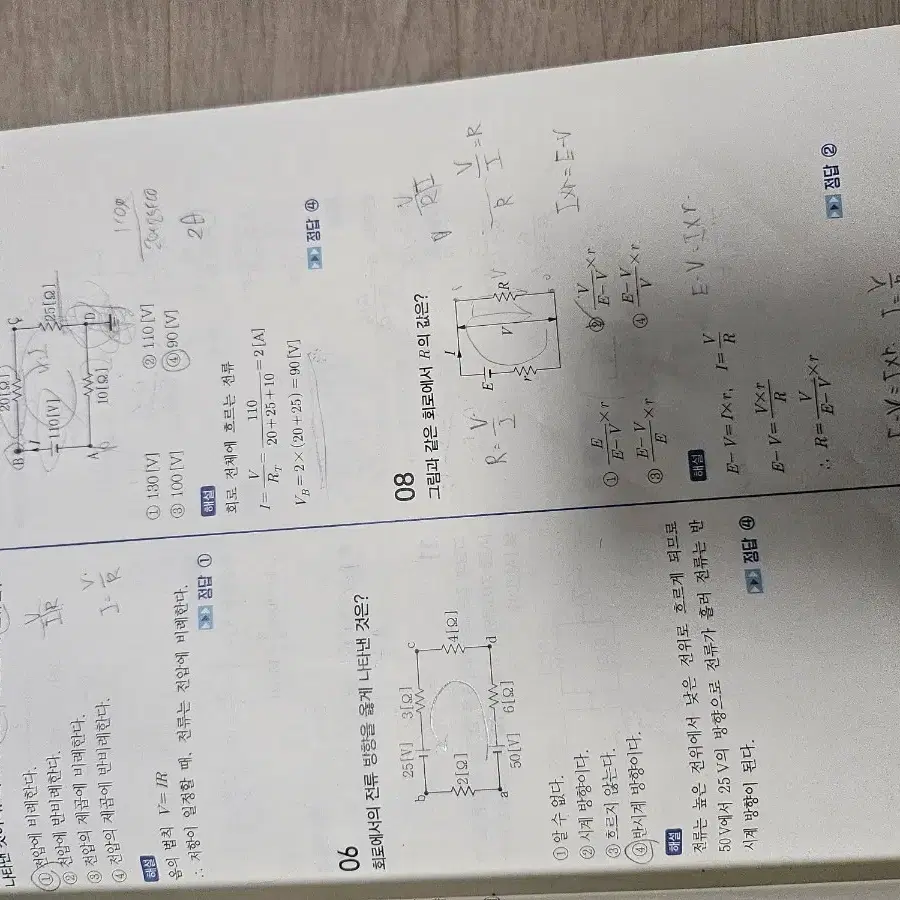 ① 전압에 비례한다.
② 전압에 반비례한다.
③ 전압의 제곱에 비례한다.
④ 전압의 제곱에 반비례한다.
V/IR
I = V/R
해설
옴의 법칙 V = IR
∴ 저항이 일정할 때, 전류는 전압에 비례한다.
정답 ①
06
회로에서의 전류 방향을 옳게 나타낸 것은?
b 25[V] 3[Ω] c
2[Ω] 4[Ω]
a 50[V] 6[Ω] d
① 알 수 없다.
② 시계 방향이다.
③ 흐르지 않는다.
④ 반시계 방향이다.
해설
전류는 높은 전위에서 낮은 전위로 흐르게 되므로
50V에서 25V의 방향으로 전류가 흘러 전류는 반
시계 방향이 된다.
정답 ④
B 20[Ω] C
I 110[V] 25[Ω]
A 10[Ω] D
① 130[V] ② 110[V]
③ 100[V] ④ 90[V]
2A
해설
회로 전체에 흐르는 전류
I = V/R_T = 110/(20+25+10) = 2[A]
V_B = 2×(20+25) = 90[V]
정답 ④
08
그림과 같은 회로에서 R의 값은?
R = V/I
E I
r V R V
V/I = R
I×r = E-V
① E/(E-V)×r ② V/(E-V)×r
③ (E-V)/E×r ④ (E-V)/V×r
해설
E-V = I×r, I = V/R
E-V = (V×r)/R
∴ R = V/(E-V)×r
E-V=I×r
정답 ②
E-V = I×r